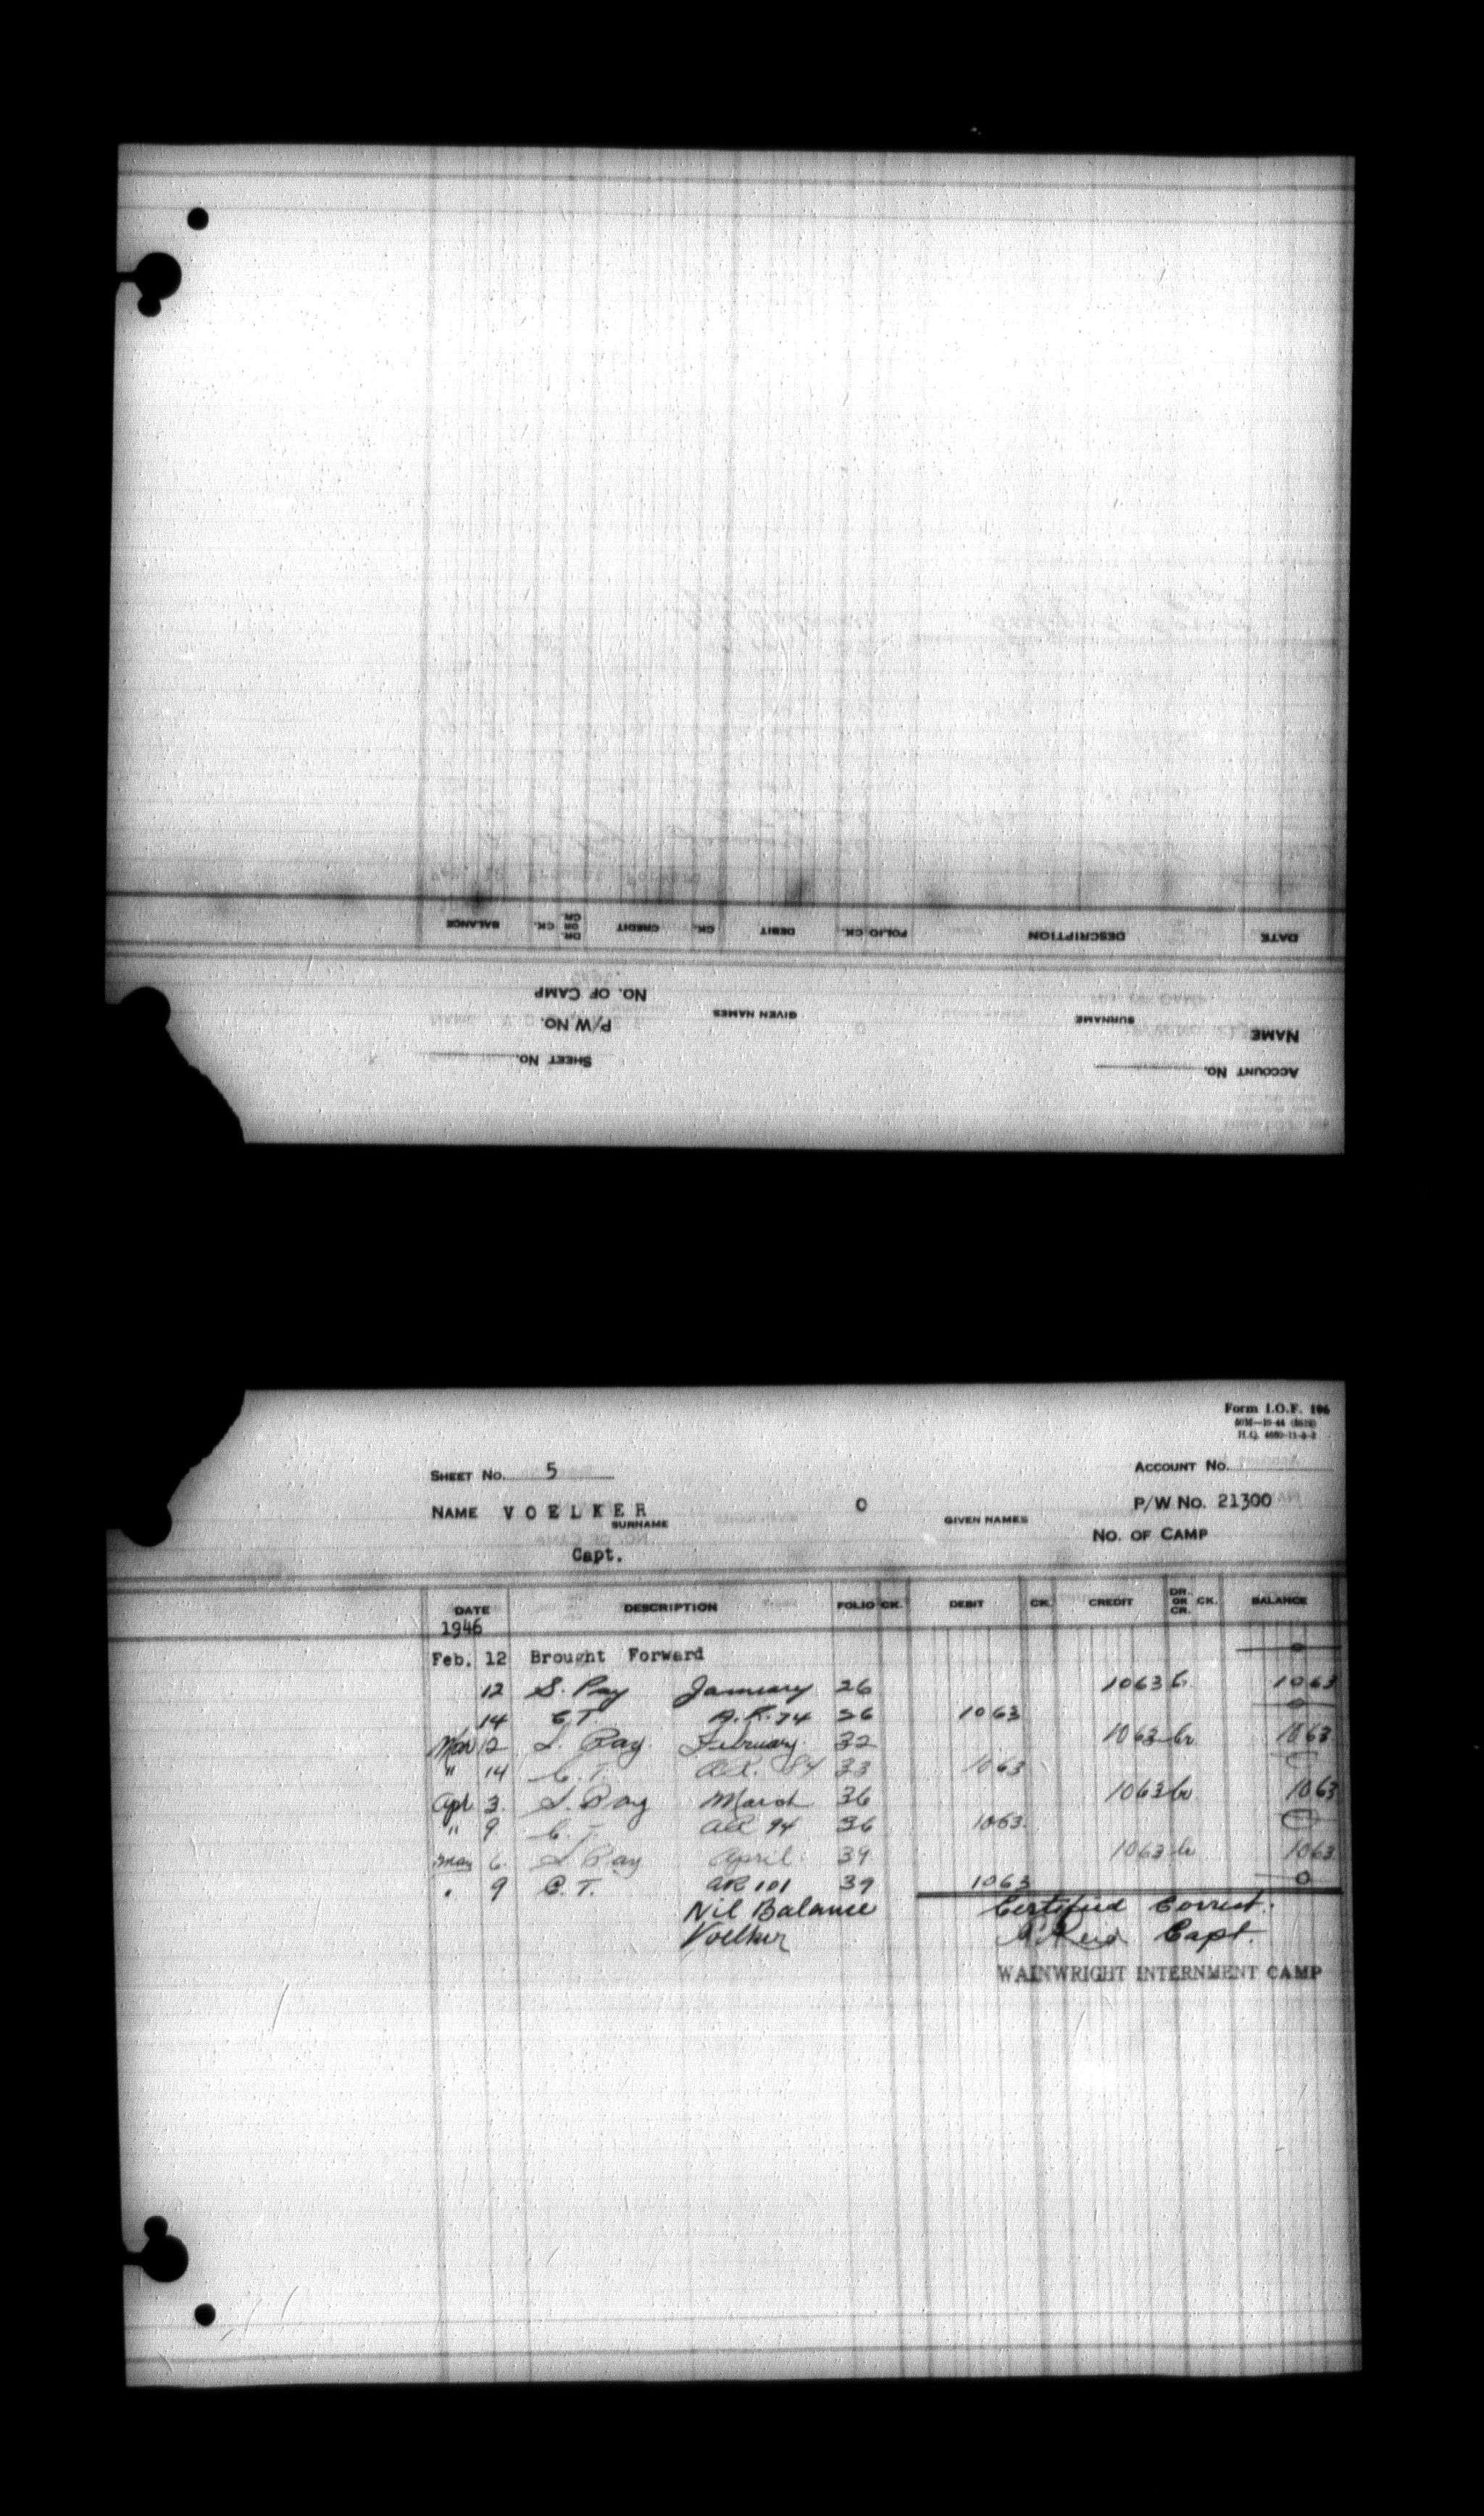 ACCOUNT No.
SHEET No.
NAME
SURNAME
GIVEN NAMES
P/W No.
No. OF CAMP
DATE DESCRIPTION FOLIO CK. DEBIT CK. CREDIT DR. OR CR. CK. BALANCE
Form I.O.F. 106
H.Q.
SHEET No. 5 ACCOUNT No.
NAME VOELKER O P/W No. 21300
SURNAME GIVEN NAMES
No. OF CAMP
Capt.
DATE DESCRIPTION FOLIO CK. DEBIT CK. CREDIT DR. OR CR. CK. BALANCE
1946
Feb. 12 Brought Forward 0
12 S. Pay January 26 1063 Cr 1063
14 C.T. A.R. 74 26 1063 0
Mar 12 S. Pay February 32 1063 Cr 1063
" 14 C.T. A.R. 84 33 1063 0
Apl 3. S. Pay March 36 1063 Cr 1063
" 9. C.T. AR 94 36 1063 0
May 6. S Pay April 39 1063 Cr 1063
" 9 C.T. AR 101 39 1063 0
Nil Balance Certified Correct.
Voelker Reid Capt.
WAINWRIGHT INTERNMENT CAMP